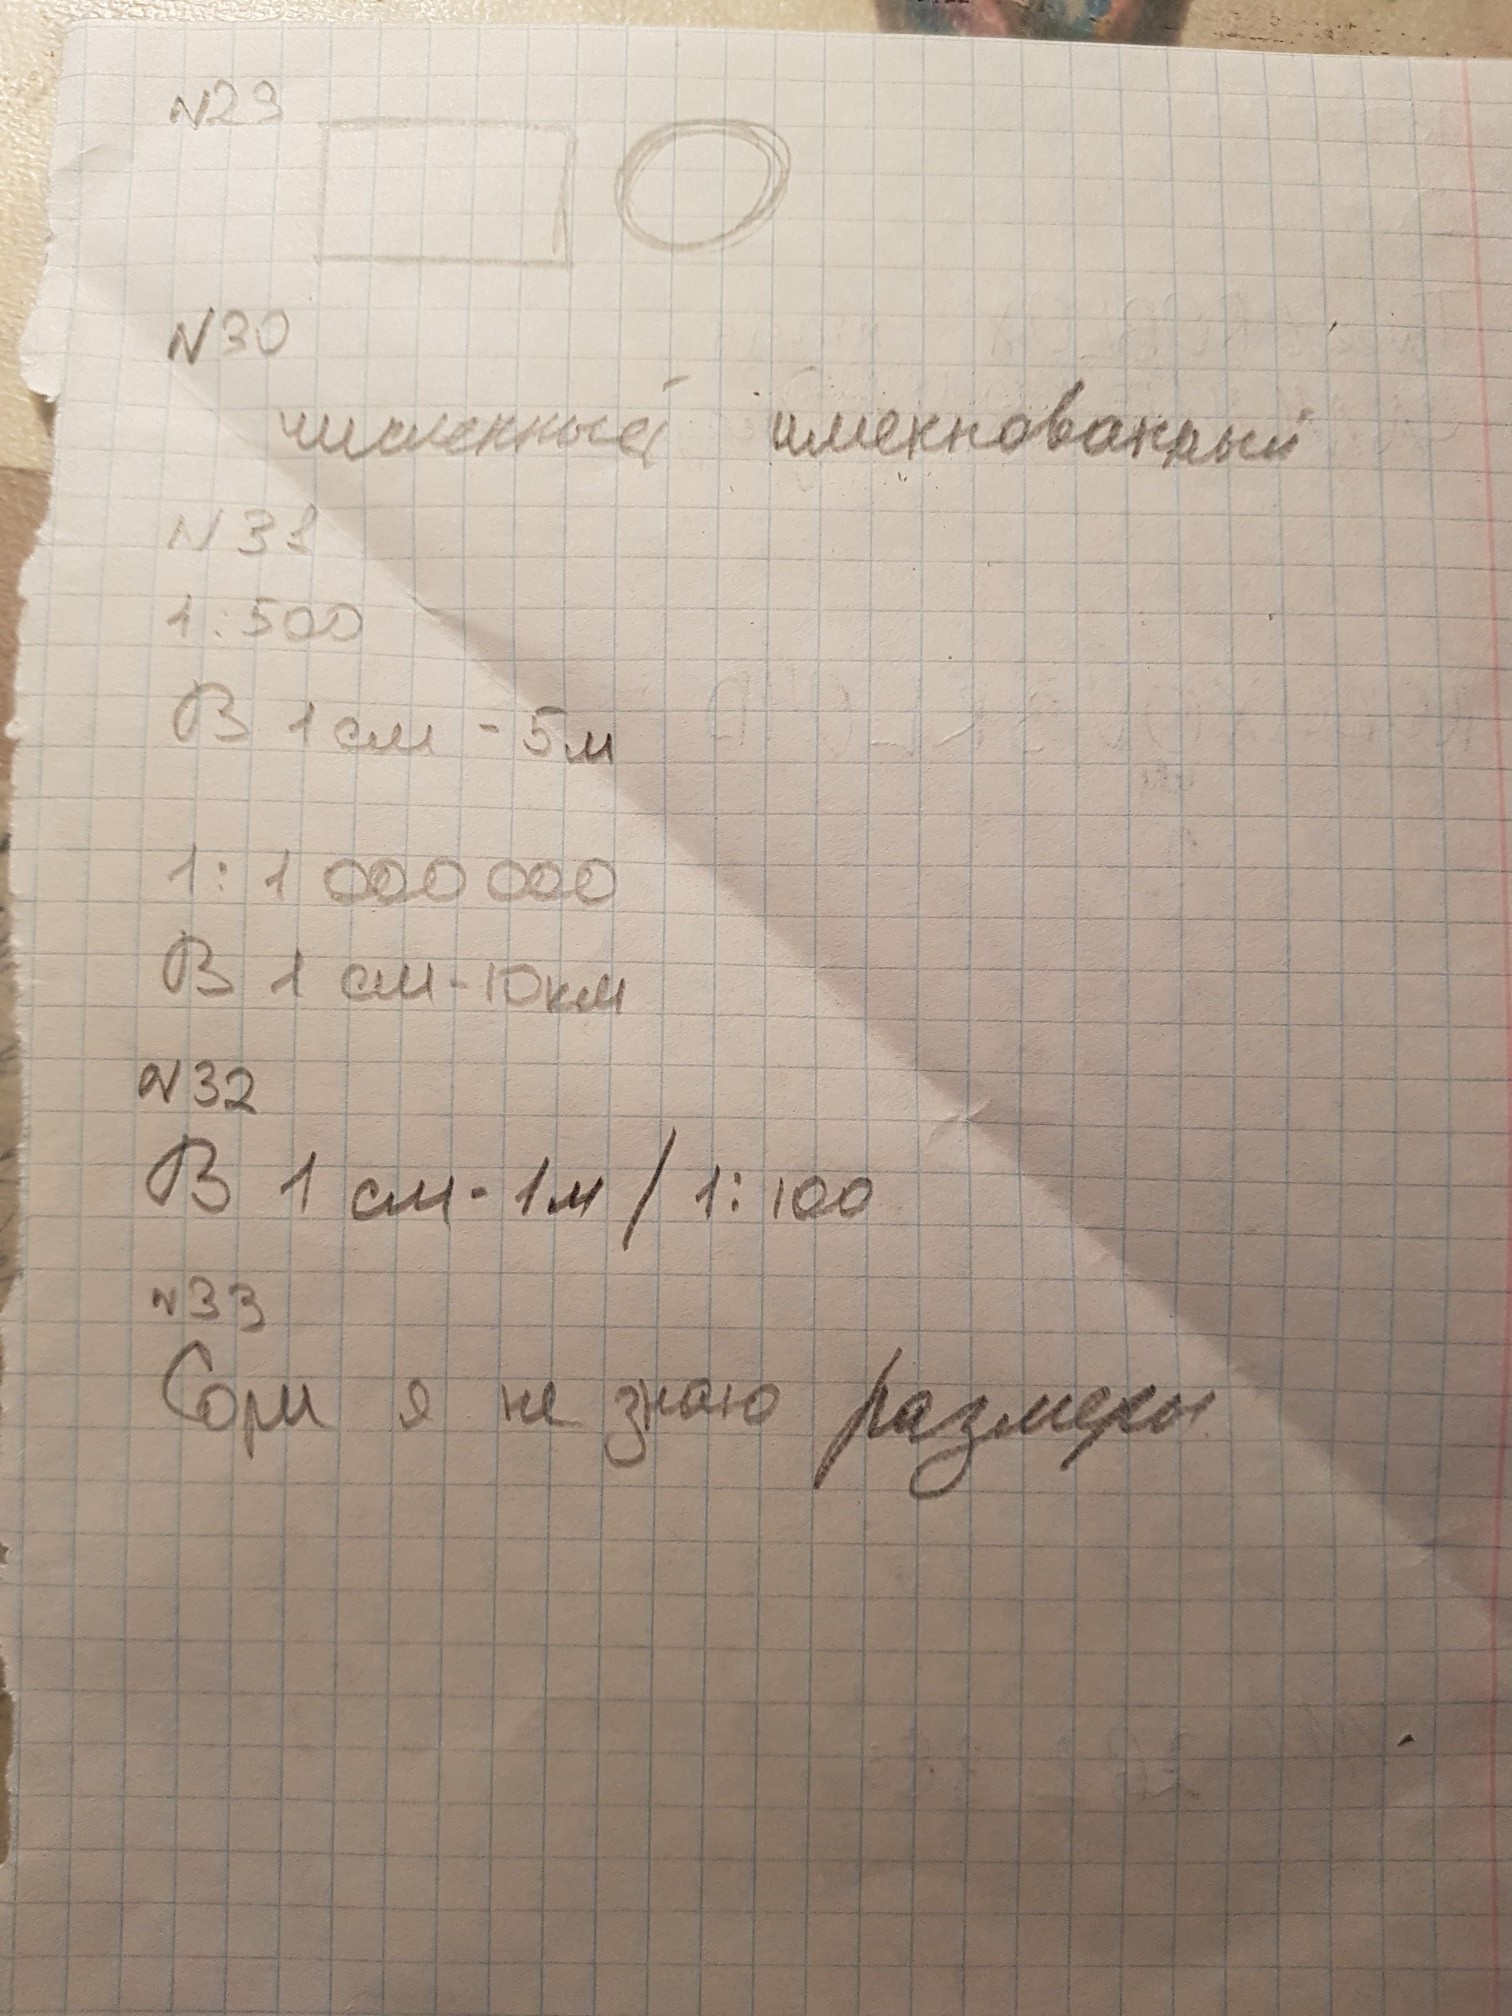 N29
N30
численный именнованный
N31
1:500
В 1 см - 5м
1:1 000 000
В 1 см - 10км
N32
В 1 см - 1м / 1:100
N33
Сори я не знаю размеры